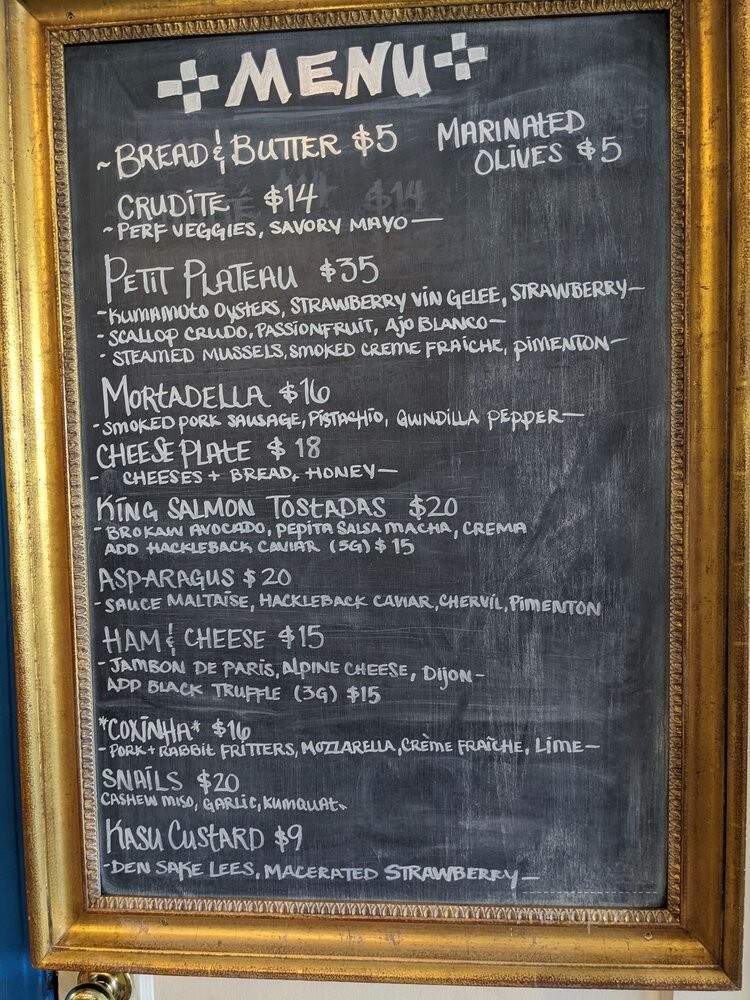 MENU
~BREAD & BUTTER $5
MARINATED
OLIVES $5
CRUDITE $14
~PERF VEGGIES, SAVORY MAYO—
PETIT PLATEAU $35
-KUMAMOTO OYSTERS, STRAWBERRY VIN GELEE, STRAWBERRY—
-SCALLOP CRUDO, PASSIONFRUIT, AJO BLANCO—
- STEAMED MUSSELS, SMOKED CREME FRAICHE, PIMENTON—
MORTADELLA $16
-SMOKED PORK SAUSAGE, PISTACHIO, GWINDILLA PEPPER—
CHEESE PLATE $18
- CHEESES + BREAD, HONEY—
KING SALMON TOSTADAS $20
-BROKAW AVOCADO, PEPITA SALSA MACHA, CREMA
ADD HACKLEBACK CAVIAR (5G) $15
ASPARAGUS $20
-SAUCE MALTAÏSE, HACKLEBACK CAVIAR, CHERVIL, PIMENTON
HAM & CHEESE $15
-JAMBON DE PARIS, ALPINE CHEESE, DIJON-
ADD BLACK TRUFFLE (3G) $15
*COXINHA* $16
-PORK + RABBIT FRITTERS, MOZZARELLA, CRÈME FRAÎCHE, LIME—
SNAILS $20
CASHEW MISO, GARLIC, KUMQUAT~
KASU CUSTARD $9
-DEN SAKE LEES, MACERATED STRAWBERRY—